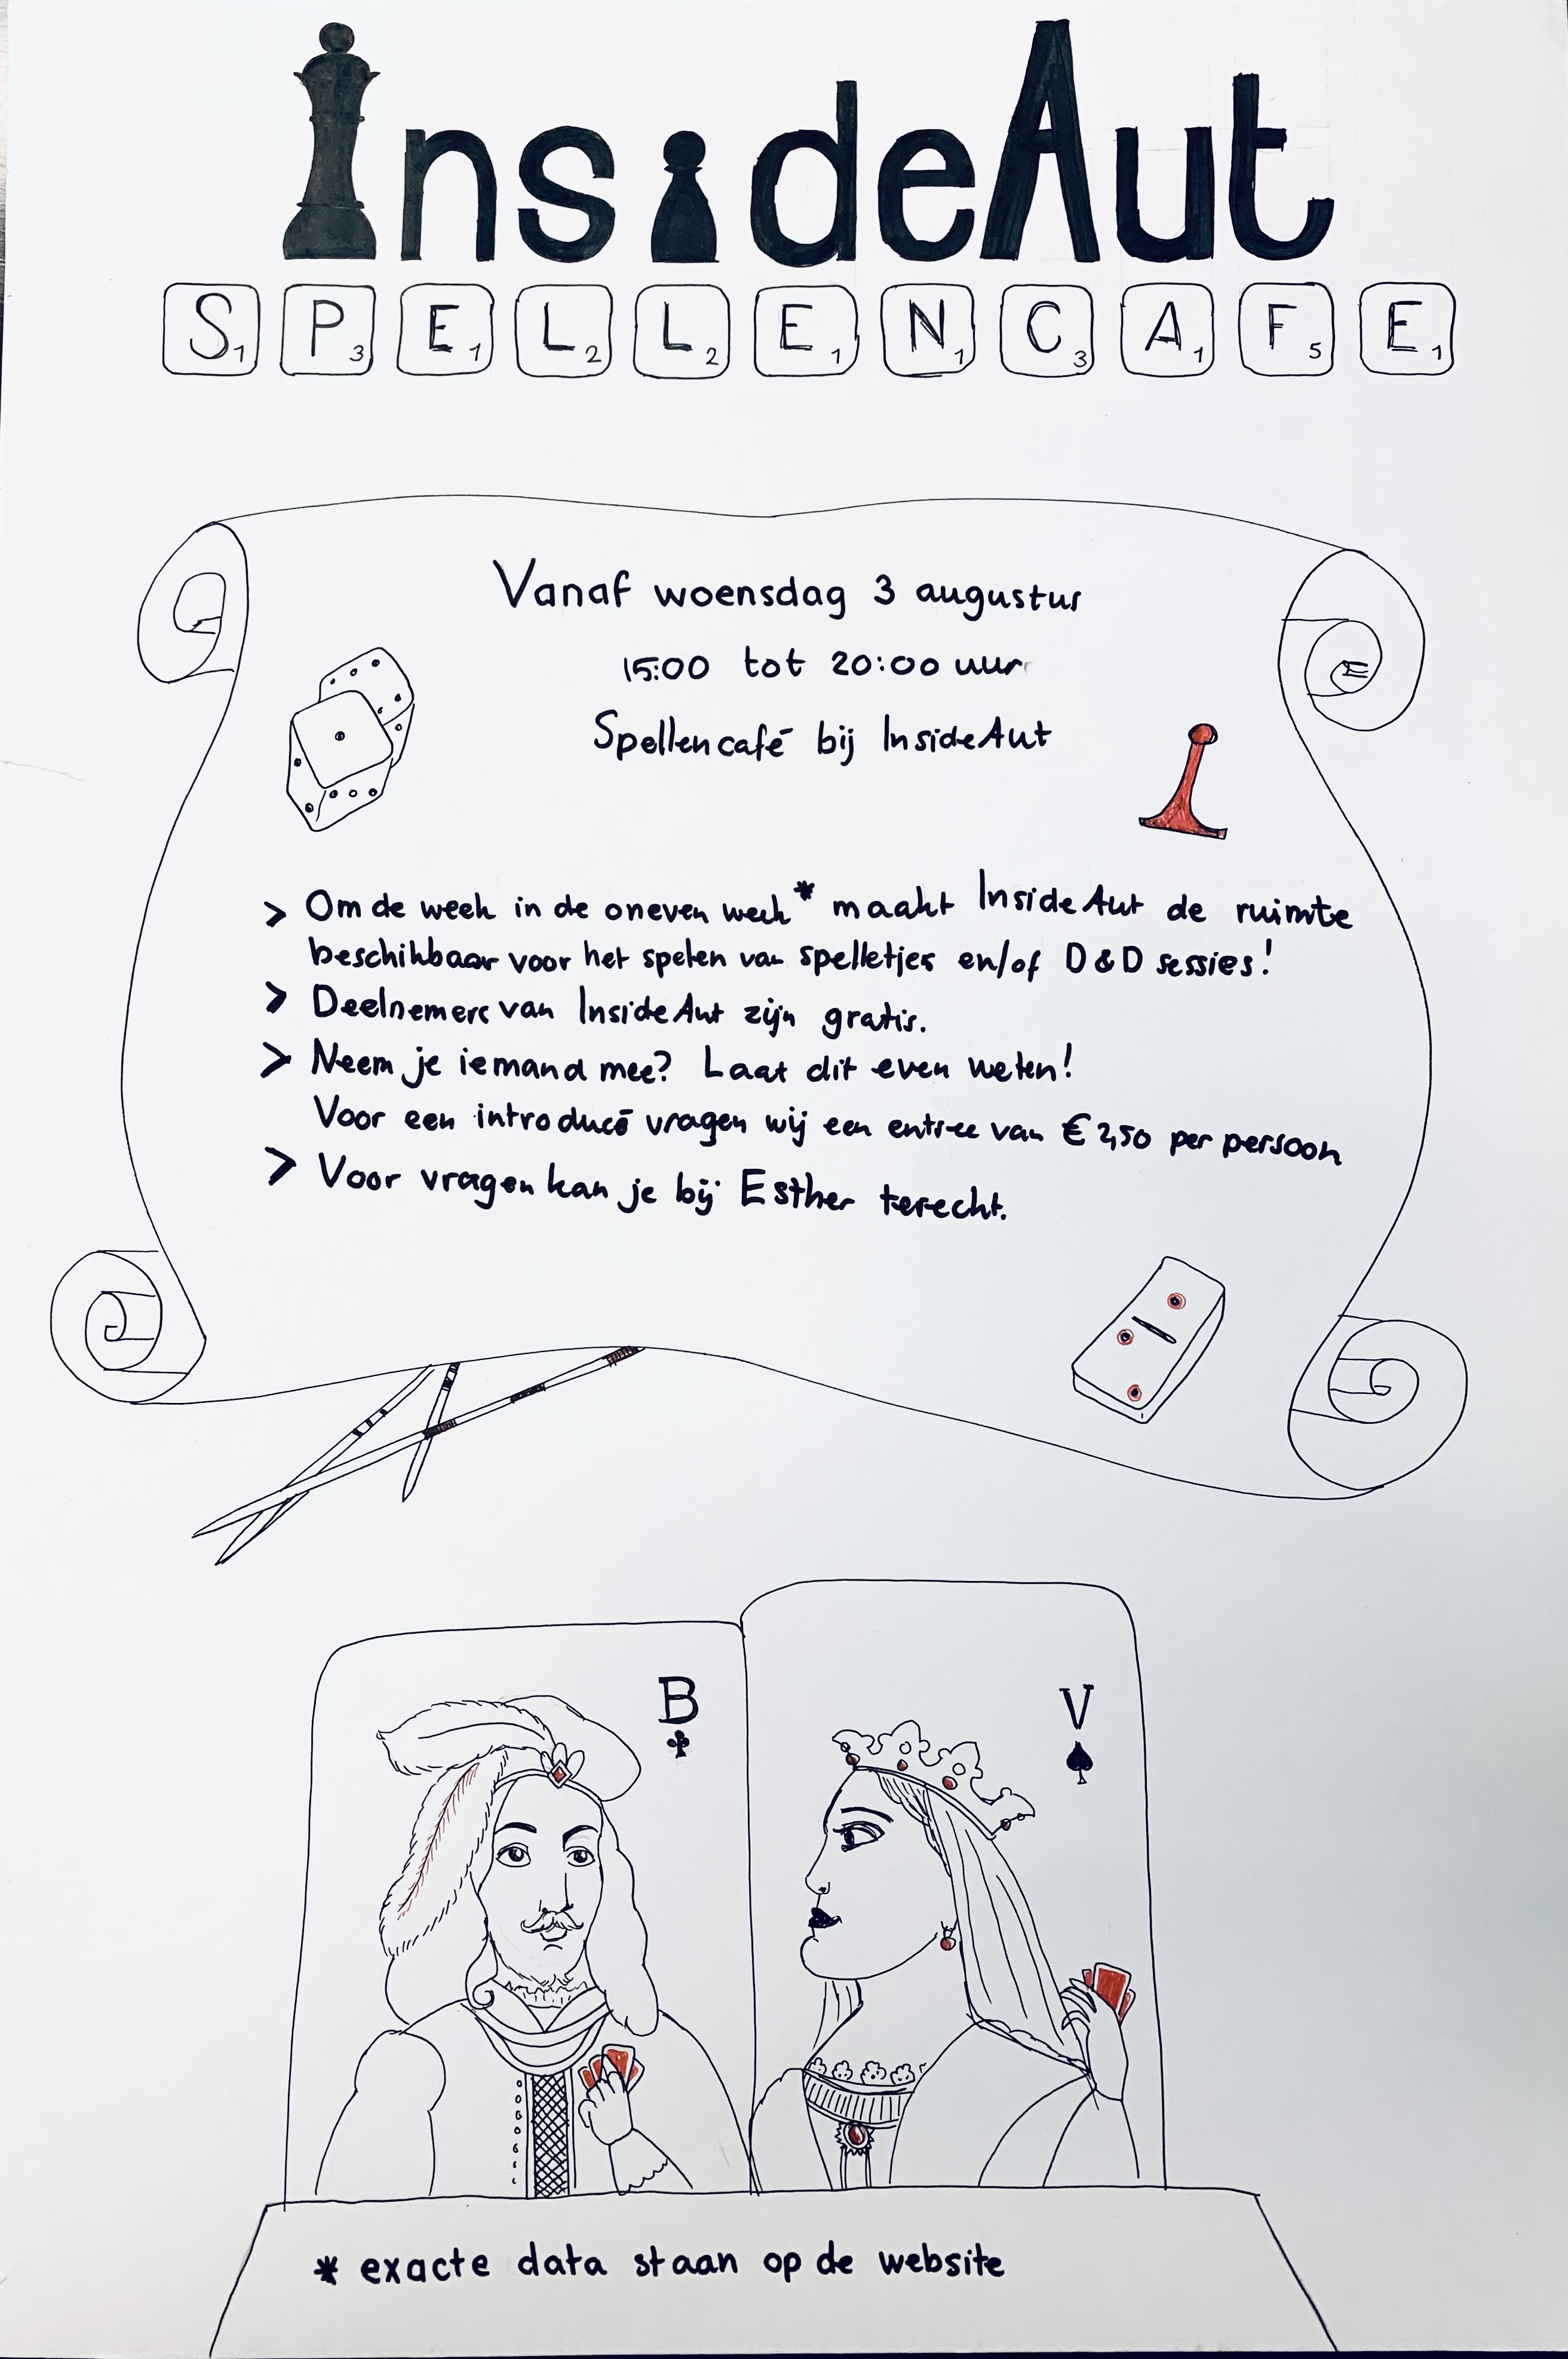 InsideAut
S1 P3 E1 L2 L2 E1 N1 C3 A1 F5 E1
Vanaf woensdag 3 augustus
15:00 tot 20:00 uur
Spellencafé bij InsideAut
> Om de week in de oneven week* maakt InsideAut de ruimte
beschikbaar voor het spelen van spelletjes en/of D&D sessies!
> Deelnemers van InsideAut zijn gratis.
> Neem je iemand mee? Laat dit even weten!
Voor een introducé vragen wij een entree van € 2,50 per persoon
> Voor vragen kan je bij Esther terecht.
B
V
* exacte data staan op de website